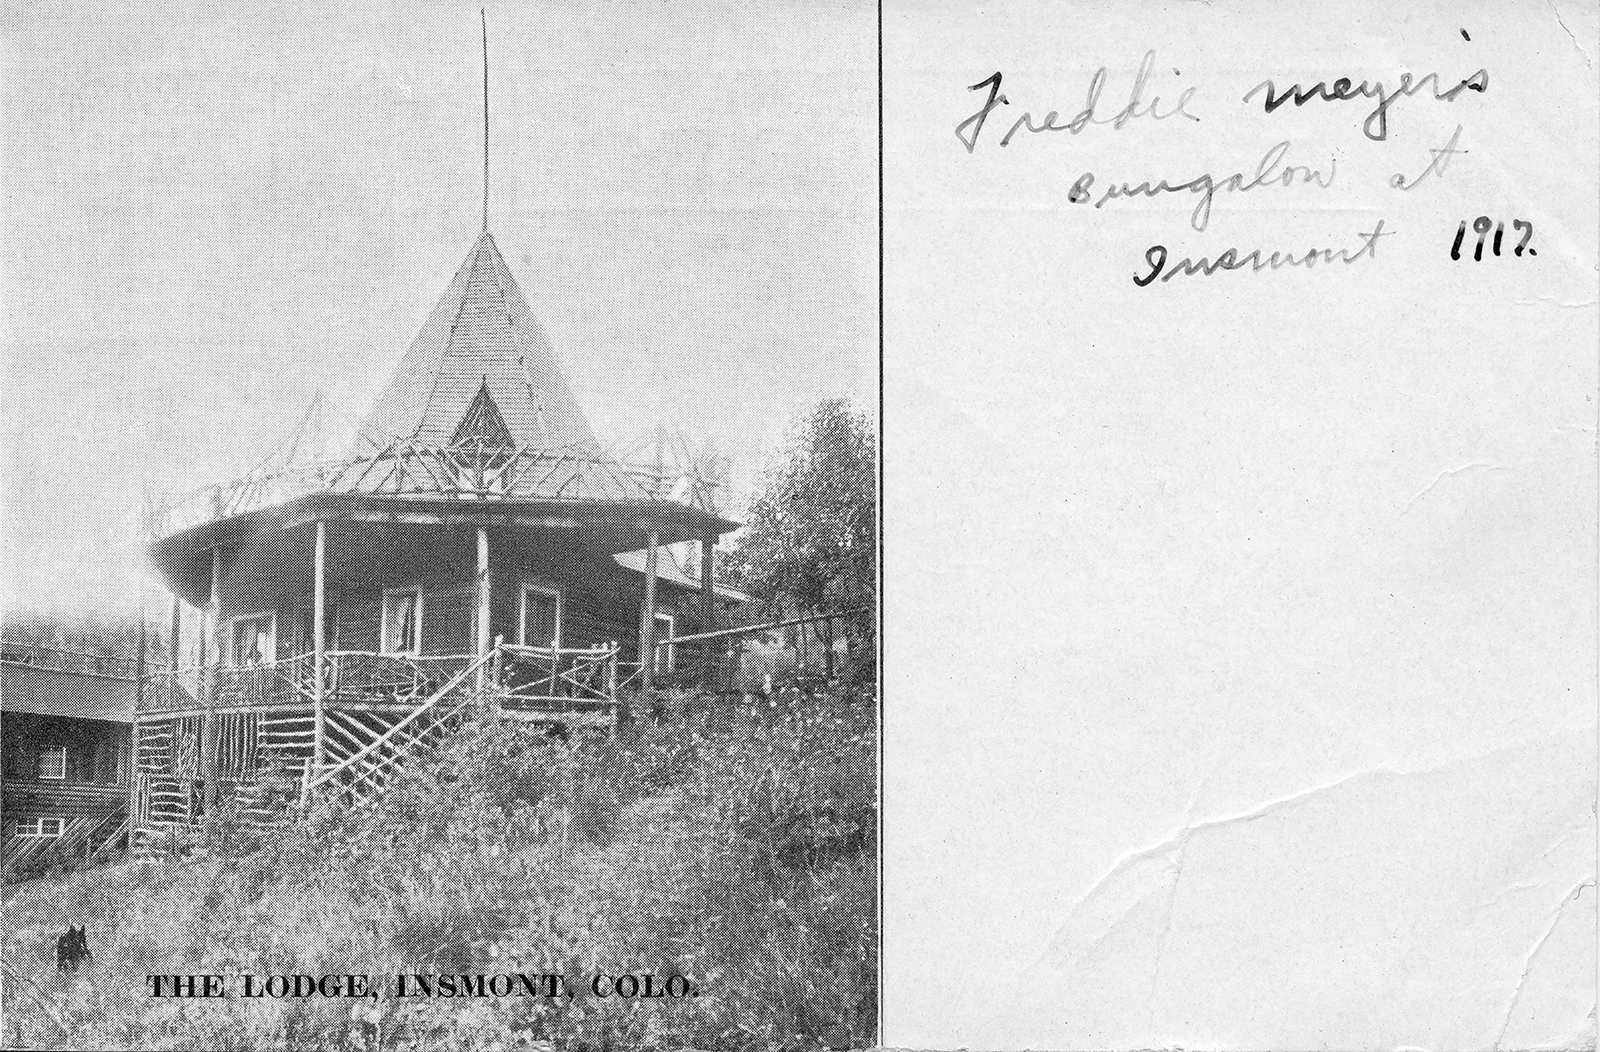 THE LODGE, INSMONT, COLO.
Freddie Meyer's
Bungalow at
Insmont 1917.